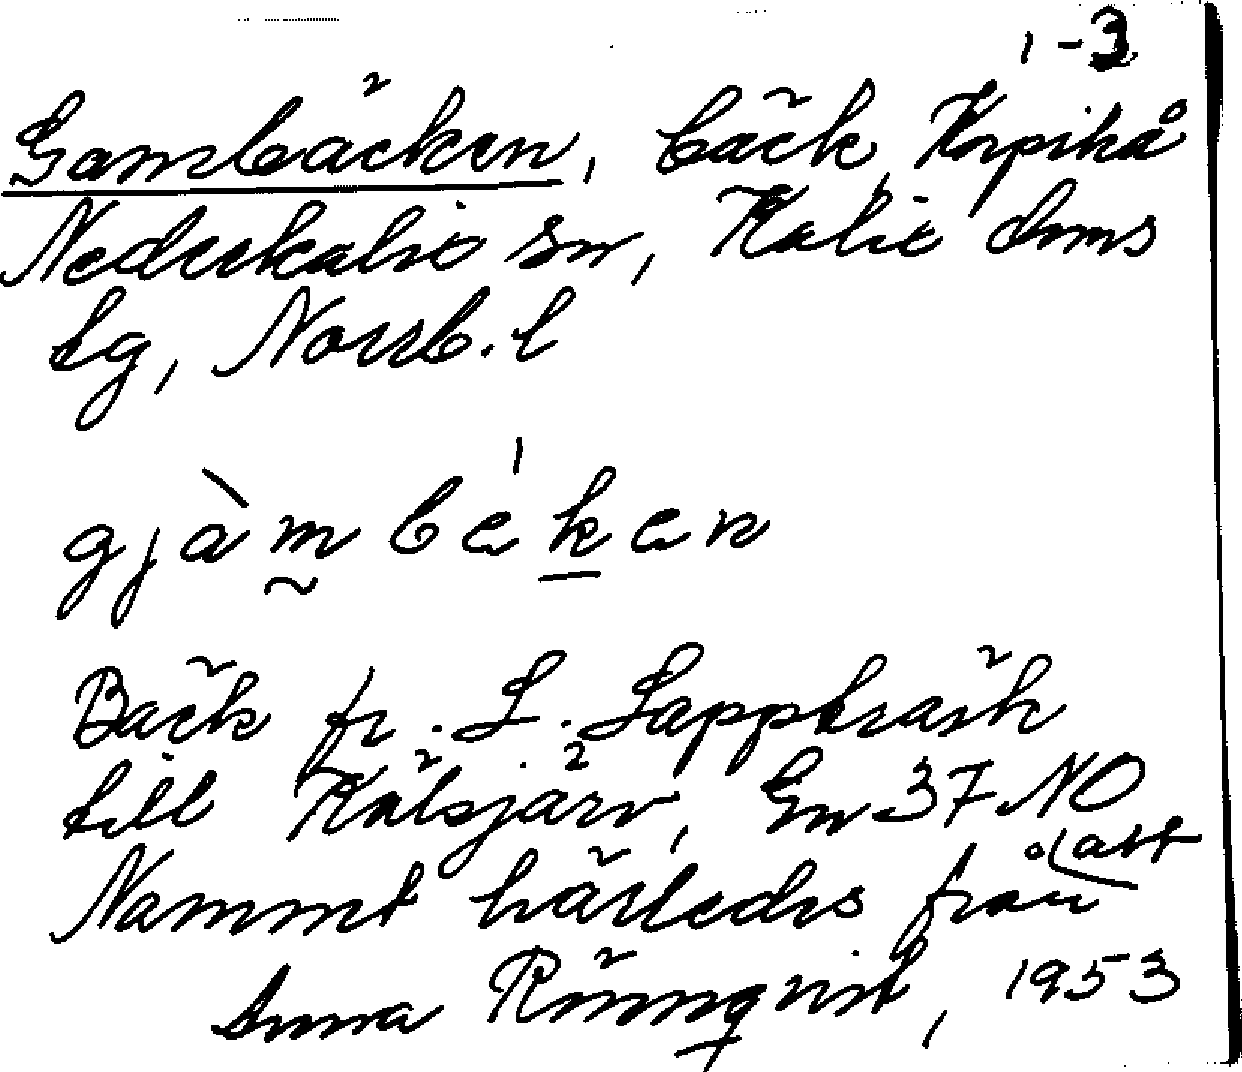 1-3
Gambäcken, bäck, Korpikå
Nederkalix sn, Kalix doms
lg, Norrb. l
gjàmbék̲en
Bäck fr. L. Lappträsk
till Kälsjärv, Gm 37 NO
Namnet härledes från att
Anna Rönnqvist, 1953